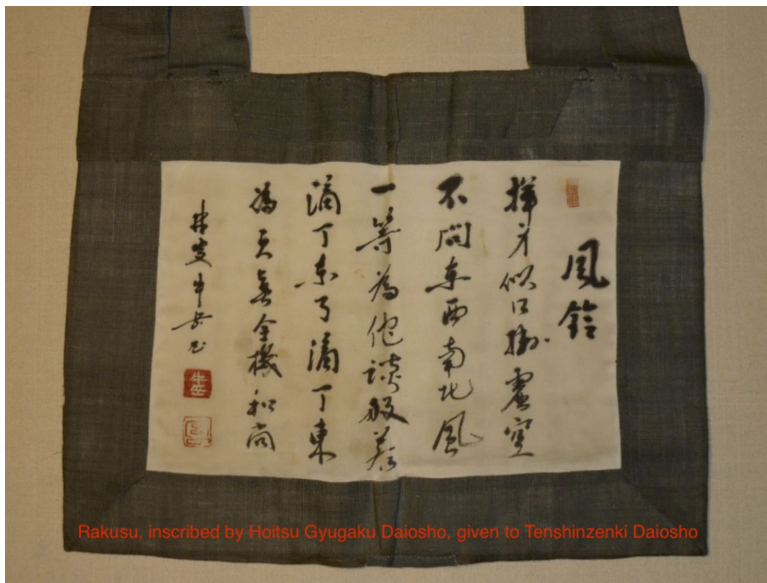 風鈴
渾身似口掛虚空
不問東西南北風
一等為他談般若
滴丁東了滴丁東
為天真全機和尚
林叟牛岳
Rakusu, inscribed by Hoitsu Gyugaku Daiosho, given to Tenshinzenki Daiosho